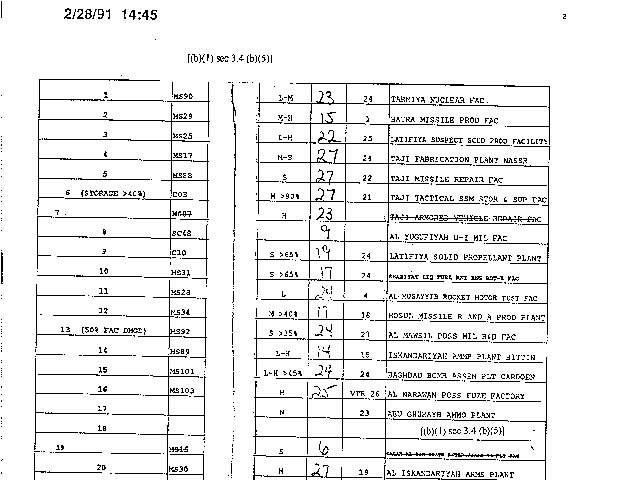 2/28/91 14:45
[(b)(1) sec 3.4 (b)(5)]
1 MS90 L-M 23 24 TARMIYA NUCLEAR FAC.
2 MS29 M-H 15 HATRA MISSILE PROD FAC
3 MS25 L-H 22 25 LATIFIYA SUSPECT SCUD PROD FACILITY
4 MS17 27 24 TAJI FABRICATION PLANT NASSR
5 S 27 22 TAJI MISSILE REPAIR FAC
6 (STORAGE >40%) C03 H >90% 27 21 TAJI TACTICAL SSM STOR & SUP FAC
7 MS87 H 23 TAJI ARMORED VEHICLE REPAIR FAC
8 SC48 9 AL YUSUFIYAH MIL FAC
9 C10 S >65% 19 24 LATIFIYA SOLID PROPELLANT PLANT
10 MS31 S >65% 17 24
11 MS28 L 4 AL MUSAYYIB ROCKET MOTOR TEST FAC
12 MS34 M >40% 17 18 MOSUL MISSILE R AND PROD PLANT
13 (50% FAC DMGE) MS92 S >35% 24 AL MAWSIL POSS MIL FAC
14 MS89 L-H 14 ISKANDARIYAH AMMP PLANT HITTIN
15 MS101 24 24 BAGHDAD BOMB ASSEM PLT
16 MS103 H 25 VTR 26 AL NARAWAN POSS FUZE FACTORY
17 N 23 ABU GHURAYB AMMO PLANT
18 [(b)(1) sec 3.4 (b)(5)]
19 S 6
20 MS30 H 27 19 AL ISKANDARIYAH ARMS PLANT